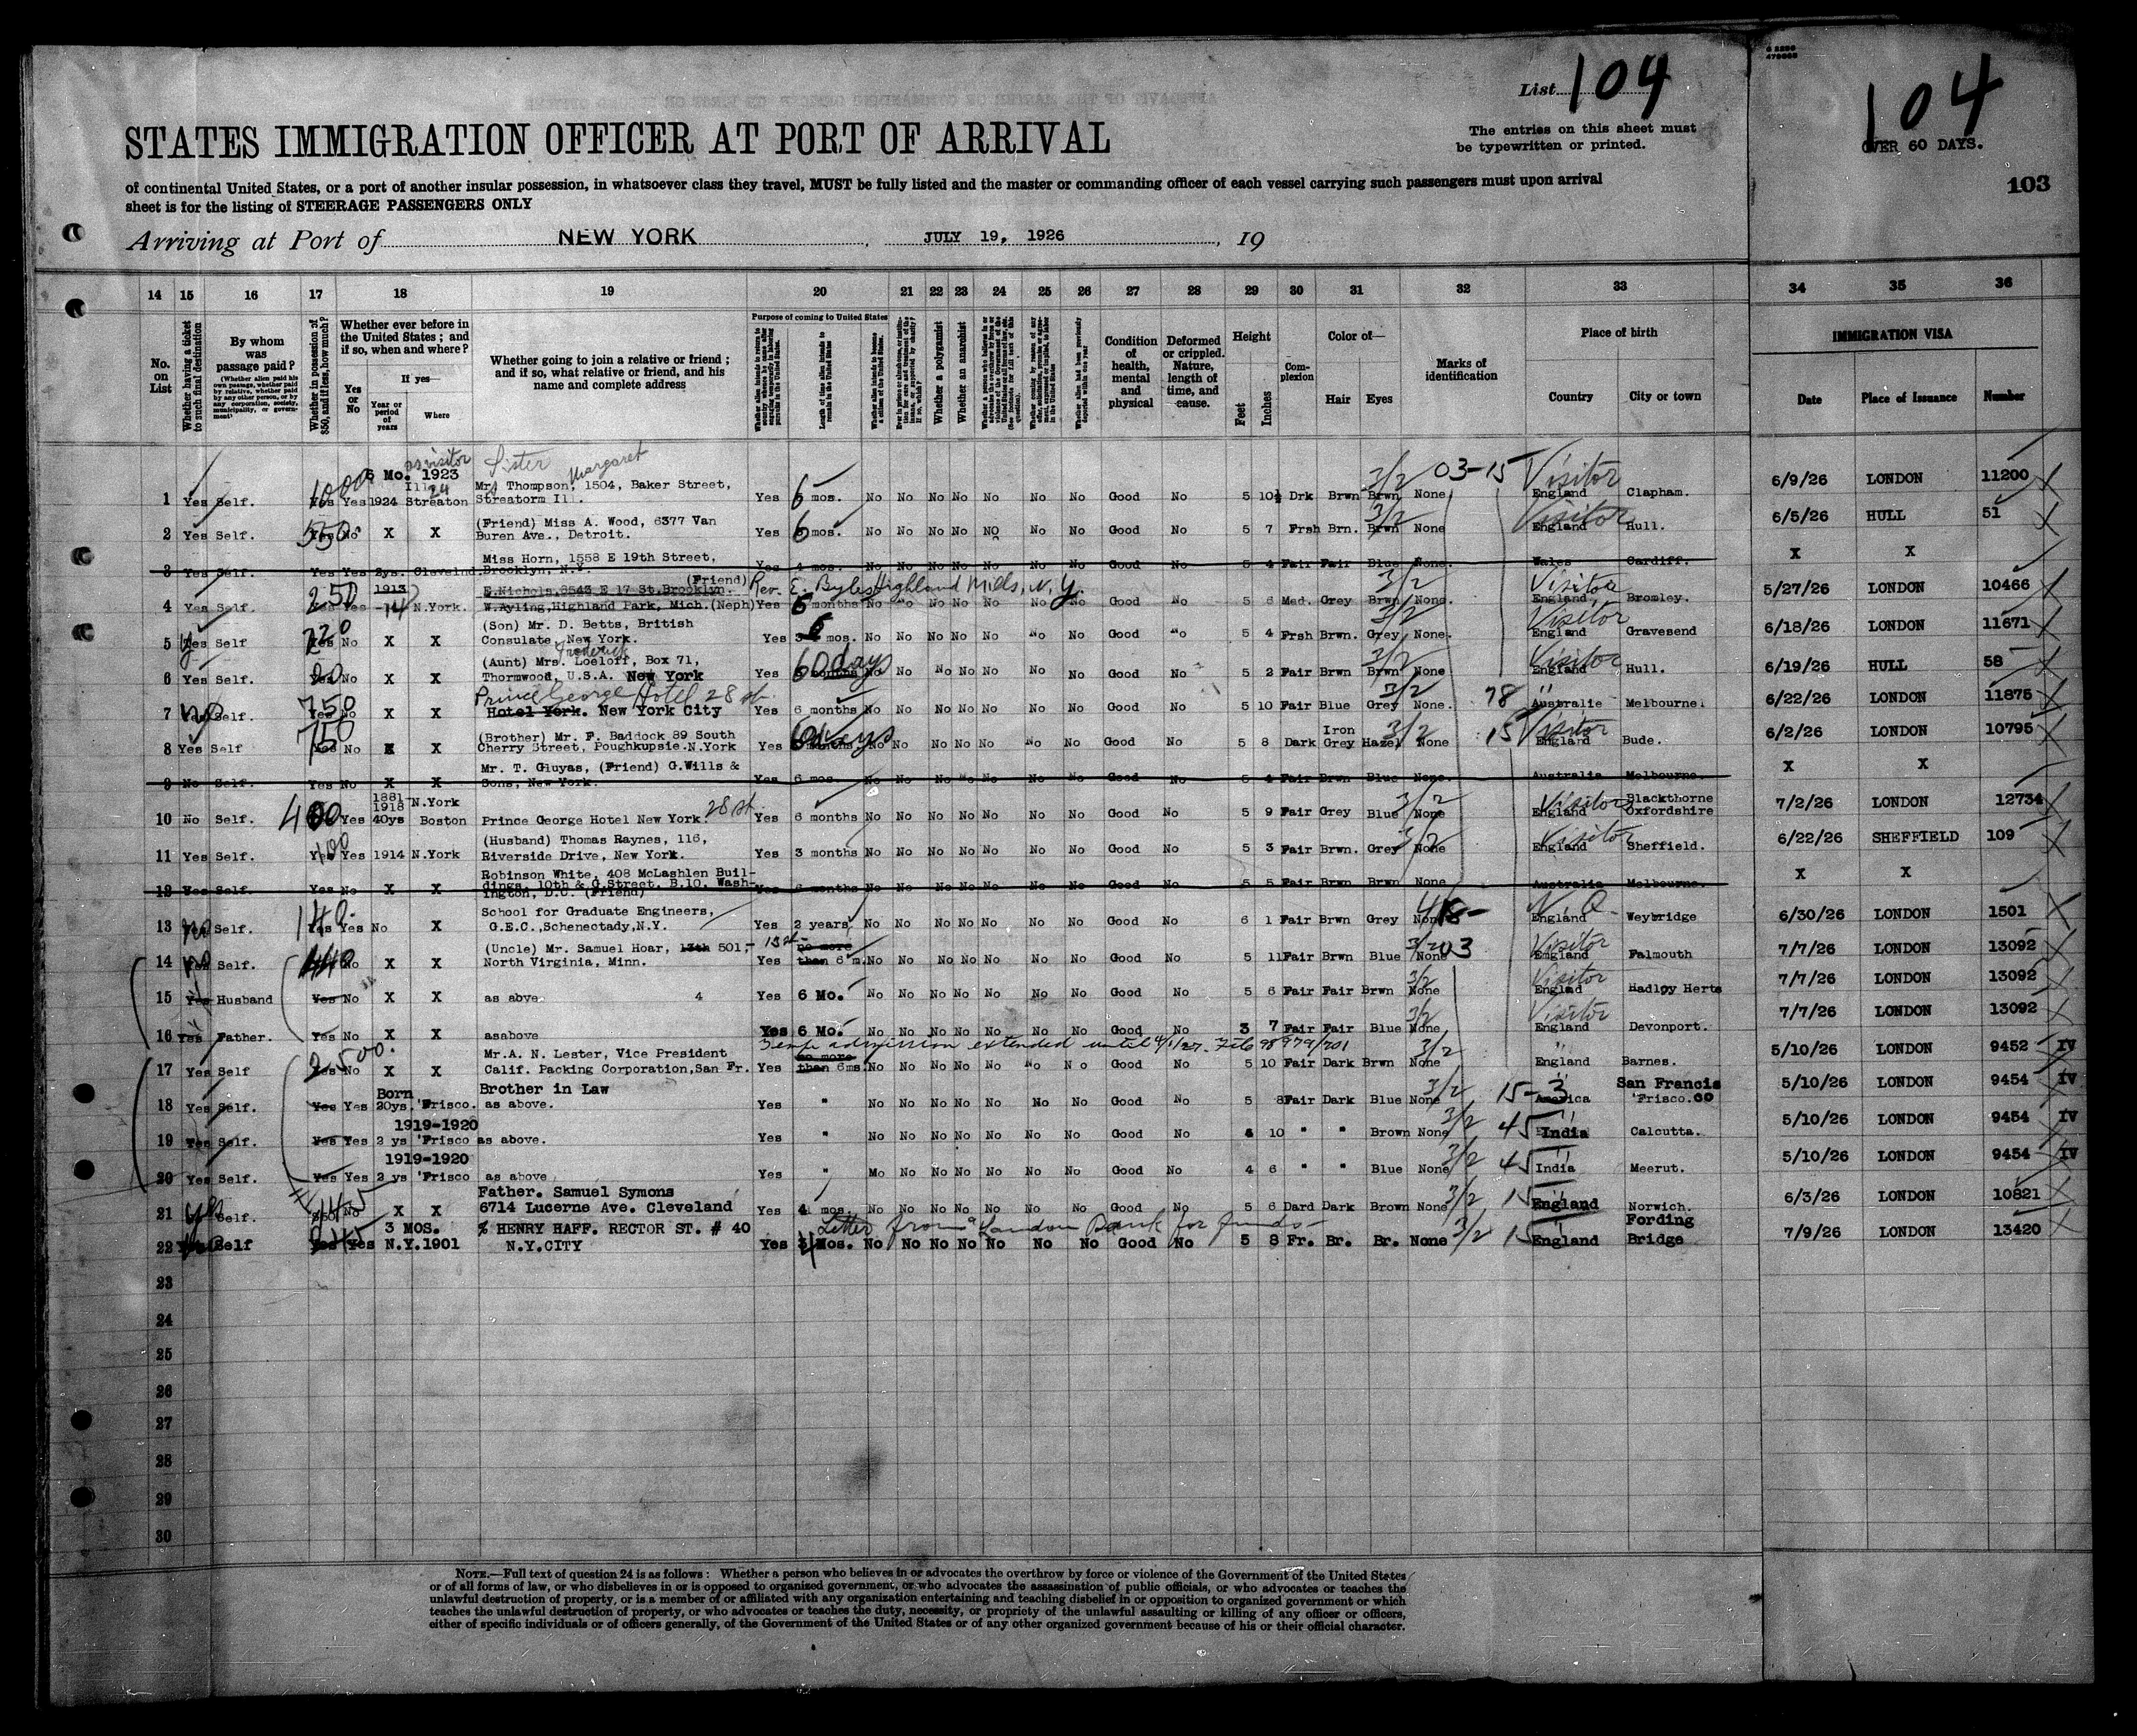 List 104
104
OVER 60 DAYS.
103
The entries on this sheet must
be typewritten or printed.
STATES IMMIGRATION OFFICER AT PORT OF ARRIVAL
of continental United States, or a port of another insular possession, in whatsoever class they travel, MUST be fully listed and the master or commanding officer of each vessel carrying such passengers must upon arrival
sheet is for the listing of STEERAGE PASSENGERS ONLY
Arriving at Port of NEW YORK, JULY 19, 1926, 19
14 15 16 17 18 19 20 21 22 23 24 25 26 27 28 29 30 31 32 33 34 35 36
No. on List
Whether having a ticket to such final destination
By whom was passage paid?
Whether in possession of $50, and if less, how much?
Whether ever before in the United States; and if so, when and where?
Yes or No
If yes—
Year or period of years
Where
Whether going to join a relative or friend; and if so, what relative or friend, and his name and complete address
Purpose of coming to United States
Length of time alien intends to remain in the United States
Whether a polygamist
Whether an anarchist
Condition of health, mental and physical
Deformed or crippled. Nature, length of time, and cause.
Height
Feet
Inches
Complexion
Color of—
Hair
Eyes
Marks of identification
Place of birth
Country
City or town
IMMIGRATION VISA
Date
Place of Issuance
Number
6 Mo. 1923 as visitor Sister Margaret 3/2 03-15 Visitor
1 Yes Self. 1000 Yes Yes 1924 Ill. 24 Streaton Mr. Thompson, 1504, Baker Street, Streatorm Ill. Yes 6 mos. No No No No No No No Good No 5 10½ Drk Brwn Brwn None England Clapham. 6/9/26 LONDON 11200
2 Yes Self. 550 No X X (Friend) Miss A. Wood, 6377 Van Buren Ave., Detroit. Yes 6 mos. No No No No NO No No Good No 5 7 Frsh Brn. Brwn 3/2 None Visitor England Hull. 6/5/26 HULL 51
3 Yes Self. Yes Yes 2ys. Clevelnd. Miss Horn, 1558 E 19th Street, Brooklyn, N.Y. Yes 4 mos. No No No No No No No Good No 5 4 Fair Fair Blue None. Wales Cardiff. X X
4 Yes Self. 250 Yes 1913 -14 N.York. E.Nichols,8543 E 17 St.Brooklyn. (Friend) Rev. E. Byles Highland Mills, N.Y. W.Ayling,Highland Park, Mich.(Neph) Yes 6 months No No No No No No No Good No 5 6 Med. Grey Brwn 3/2 None. Visitor England, Bromley. 5/27/26 LONDON 10466
5 Yes Self 220 No X X (Son) Mr. D. Betts, British Consulate, New York. Yes 6 mos. No No No No No No No Good No 5 4 Frsh Brwn. Grey 3/2 None. Visitor England Gravesend 6/18/26 LONDON 11671
6 Yes Self. No X X (Aunt) Mrs. Frederick Loeloff, Box 71, Thornwood, U.S.A. New York Yes 60 days No No No No No No No Good No 5 2 Fair Brwn Brwn 3/2 None Visitor England Hull. 6/19/26 HULL 58
7 No Self. 750 No X X Prince George Hotel 28 st. Hotel York. New York City Yes 6 months No No No No No No No Good No. 5 10 Fair Blue Grey 3/2 None. 78 " Australie Melbourne 6/22/26 LONDON 11875
8 Yes Self 750 No X X (Brother) Mr. F. Baddock 89 South Cherry Street, Poughkupsie.N.York Yes 60 days No No No No No No No Good No 5 8 Dark Iron Grey Hazel 3/2 None 15 Visitor England Bude. 6/2/26 LONDON 10795
9 No Self. Yes No X X Mr. T. Gluyas, (Friend) G.Wills & Sons, New York. Yes 6 mos. No No No No No No No Good No 5 4 Fair Brwn Blue None. Australia Melbourne. X X
10 No Self. 400 Yes 1881 1918 40ys N.York Boston Prince George Hotel New York. 28 st. Yes 6 months No No No No No No No Good No 5 9 Fair Grey Blue 3/2 None Visitor England Blackthorne Oxfordshire 7/2/26 LONDON 12734
11 Yes Self. 100 Yes 1914 N.York (Husband) Thomas Raynes, 116, Riverside Drive, New York. Yes 3 months No No No No No No No Good No 5 3 Fair Brwn. Grey 3/2 None Visitor England Sheffield. 6/22/26 SHEFFIELD 109
12 Yes Self. Yes No X X Robinson White, 408 McLashlen Buildings, 10th & G.Street, B.10. Washington, D.C. (Friend) Yes 6 months No No No No No No No Good No 5 5 Fair Brwn Brwn None Australia Melbourne. X X
13 No Self. 140 Yes No X School for Graduate Engineers, G.E.C.,Schenectady,N.Y. Yes 2 years No No No No No No No Good No 6 1 Fair Brwn Grey None N.Q. England Weybridge 6/30/26 LONDON 1501
14 No Self. 440 No X X (Uncle) Mr. Samuel Hoar, 13th 501,- 1st- North Virginia, Minn. Yes no more than 6 m. No No No No No No No Good No 5 11 Fair Brwn Blue 3/2 None 03 Visitor England Falmouth 7/7/26 LONDON 13092
15 Yes Husband Yes No X X as abve 4 Yes 6 Mo. No No No No No No No Good No 5 6 Fair Fair Brwn 3/2 None Visitor Englad Hadley Herts 7/7/26 LONDON 13092
16 Yes Father. Yes No X X asabove Yes 6 Mo. No No No No No No No Good No 3 7 Fair Fair Blue 3/2 None Visitor England Devonport. 7/7/26 LONDON 13092
Temp admission extended until 4/1/27. File 98979/701
17 Yes Self 2500. Yes No X X Mr.A. N. Lester, Vice President Calif. Packing Corporation,San Fr. Yes no more than 6ms. No No No No No No No Good No 5 10 Fair Dark Brwn 3/2 None " England Barnes. 5/10/26 LONDON 9452 IV
18 Yes Self. Yes Yes Born 20ys. 'Frisco. Brother in Law as above. Yes " No No No No No No No Good No 5 8 Fair Dark Blue 3/2 None 15-3 " America San Francisco 'Frisco. 5/10/26 LONDON 9454 IV
19 Yes Self. Yes Yes 1919-1920 2 ys 'Frisco as above. Yes " No No No No No No No Good No 10 " " Brown 3/2 None 45 India Calcutta. 5/10/26 LONDON 9454 IV
20 Yes Self. Yes Yes 1919-1920 2 ys 'Frisco as above Yes " No No No No No No No Good No 4 6 " " Blue 3/2 None 45 India Meerut. 5/10/26 LONDON 9454 IV
21 Yes Self. No X X Father. Samuel Symons 6714 Lucerne Ave. Cleveland Yes 4 mos. No No No No No No No Good No 5 6 Dard Dark Brown 3/2 None 15 England Norwich. 6/3/26 LONDON 10821
Letter from a London Bank for funds-
22 Self Yes 3 MOS. N.Y.1901 % HENRY HAFF. RECTOR ST. # 40 N.Y.CITY Yes 4 Mos. No No No No No No No Good No 5 8 Fr. Br. Br. None 3/2 15 England Fording Bridge 7/9/26 LONDON 13420
23
24
25
26
27
28
29
30
NOTE.—Full text of question 24 is as follows: Whether a person who believes in or advocates the overthrow by force or violence of the Government of the United States
or of all forms of law, or who disbelieves in or is opposed to organized government, or who advocates the assassination of public officials, or who advocates or teaches the
unlawful destruction of property, or is a member of or affiliated with any organization entertaining and teaching disbelief in or opposition to organized government or which
teaches the unlawful destruction of property, or who advocates or teaches the duty, necessity, or propriety of the unlawful assaulting or killing of any officer or officers,
either of specific individuals or of officers generally, of the Government of the United States or of any other organized government because of his or their official character.